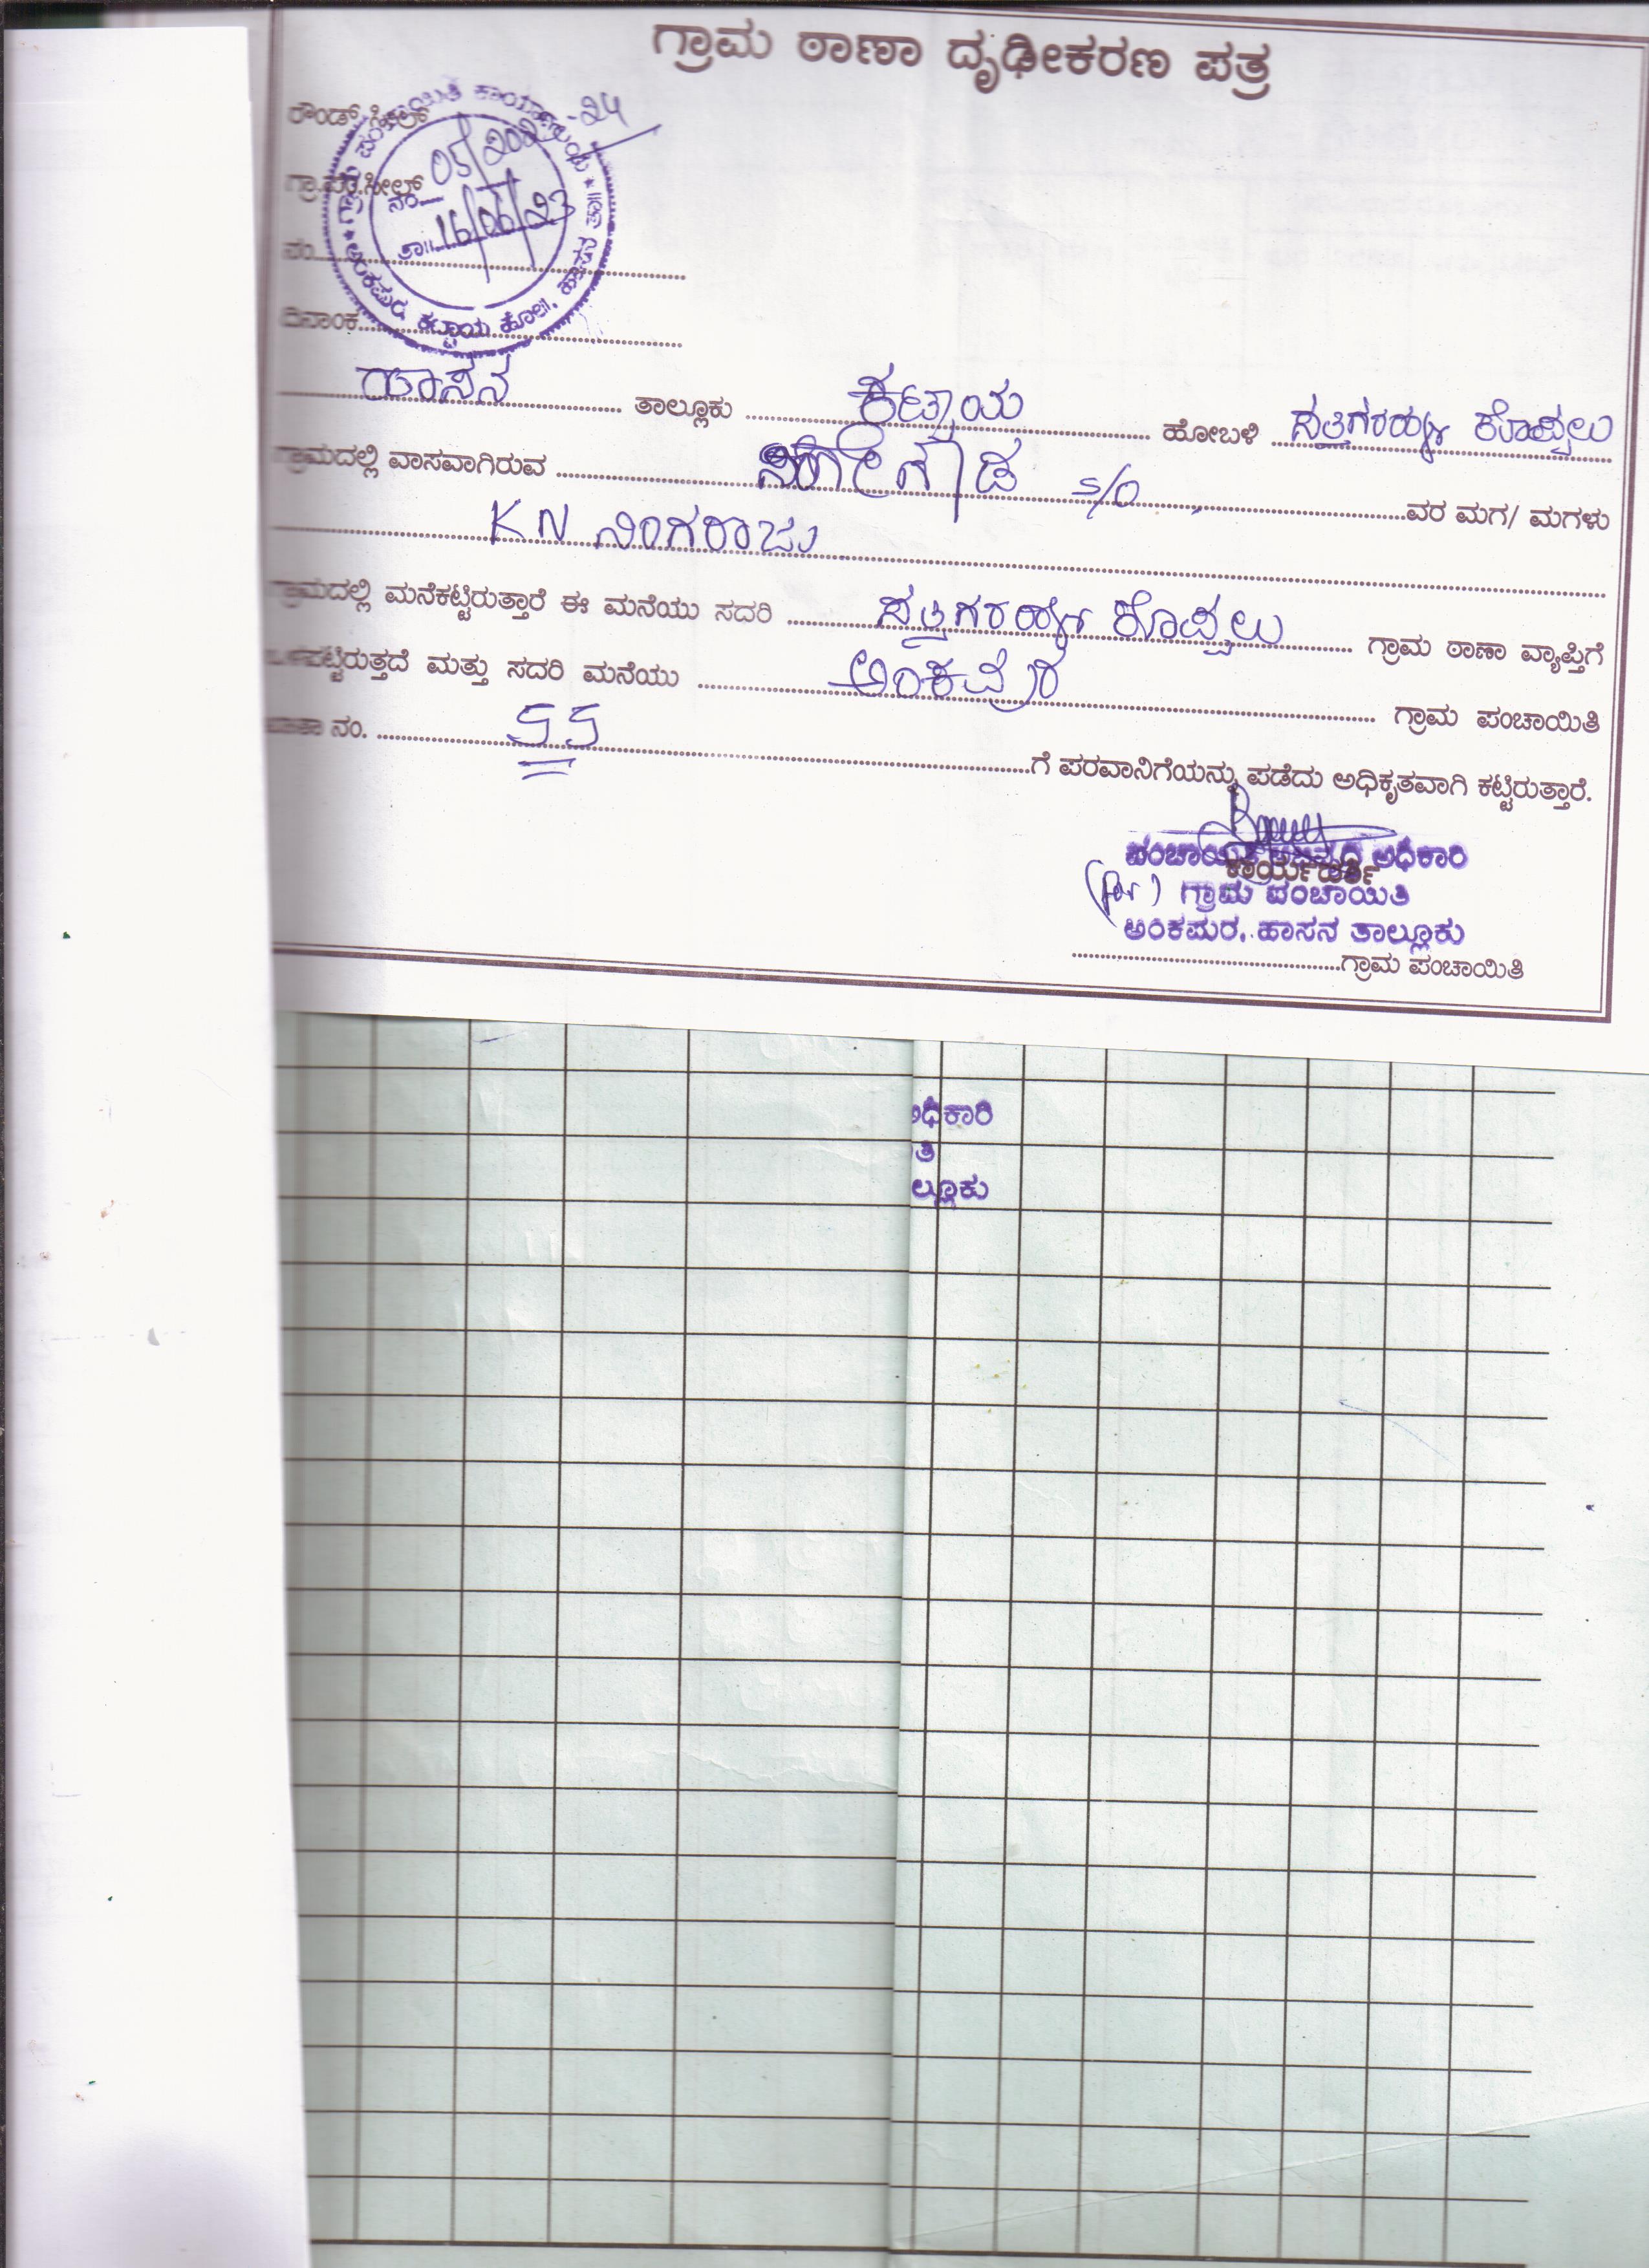 ಗ್ರಾಮ ಠಾಣಾ ದೃಢೀಕರಣ ಪತ್ರ
ರೌಂಡ್ ಸೀಲ್
ಗ್ರಾ.ಪಂ.ಸೀಲ್
ಗ್ರಾಮ ಪಂಚಾಯಿತಿ ಕಾರ್ಯಾಲಯ * ಅಂಕಪುರ, ಕಟ್ಟಾಯ ಹೋಬಳಿ, ಹಾಸನ ತಾ॥ *
ನಂ. 05/2023-24
ತಾ॥ 16/06/23
ನಂ
ದಿನಾಂಕ
ಹಾಸನ ತಾಲ್ಲೂಕು ಕಟ್ಟಾಯ ಹೋಬಳಿ ಸತ್ತಿಗರಹಳ್ಳಿ ಕೊಪ್ಪಲು
ಗ್ರಾಮದಲ್ಲಿ ವಾಸವಾಗಿರುವ ನಿಂಗೇಗೌಡ S/O ವರ ಮಗ/ ಮಗಳು
KN ನಿಂಗರಾಜು
ಗ್ರಾಮದಲ್ಲಿ ಮನೆಕಟ್ಟಿರುತ್ತಾರೆ ಈ ಮನೆಯು ಸದರಿ ಸತ್ತಿಗರಹಳ್ಳಿ ಕೊಪ್ಪಲು ಗ್ರಾಮ ಠಾಣಾ ವ್ಯಾಪ್ತಿಗೆ
ಒಳಪಟ್ಟಿರುತ್ತದೆ ಮತ್ತು ಸದರಿ ಮನೆಯು ಅಂಕಪುರ ಗ್ರಾಮ ಪಂಚಾಯಿತಿ
ಖಾತಾ ನಂ. 55 ಗೆ ಪರವಾನಿಗೆಯನ್ನು ಪಡೆದು ಅಧಿಕೃತವಾಗಿ ಕಟ್ಟಿರುತ್ತಾರೆ.
ಪಂಚಾಯಿತಿ ಅಭಿವೃದ್ಧಿ ಅಧಿಕಾರಿ
ಕಾರ್ಯದರ್ಶಿ
(for) ಗ್ರಾಮ ಪಂಚಾಯಿತಿ
ಅಂಕಪುರ, ಹಾಸನ ತಾಲ್ಲೂಕು
ಗ್ರಾಮ ಪಂಚಾಯಿತಿ
ಧಿಕಾರಿ
ತಿ
ಲ್ಲೂಕು